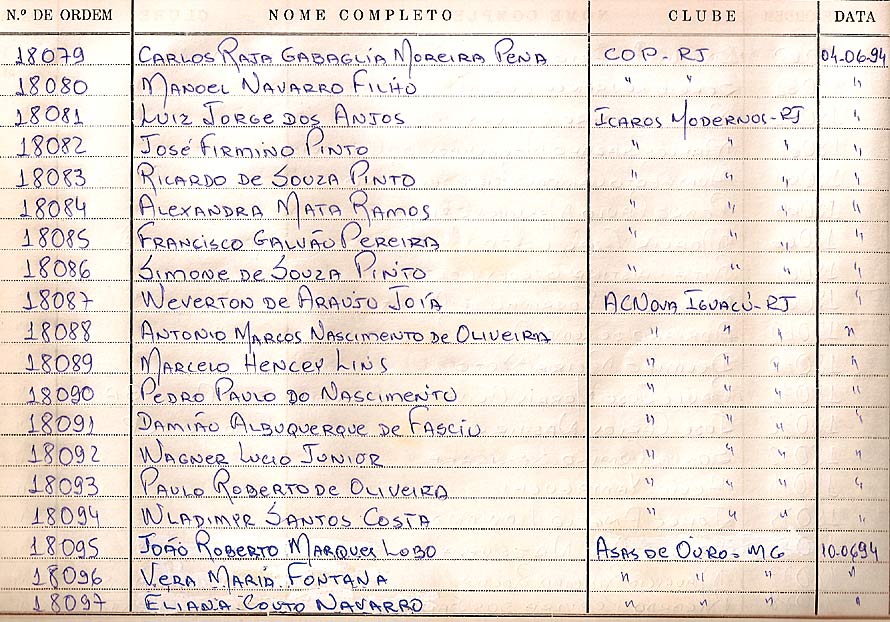 N.º DE ORDEM NOME COMPLETO CLUBE DATA
18079 CARLOS RAJA GABAGLIA MOREIRA PENA COP - RJ 04-06-94
18080 MANOEL NAVARRO FILHO " " "
18081 LUIZ JORGE DOS ANJOS ICAROS MODERNOS-RJ "
18082 JOSÉ FIRMINO PINTO " " " "
18083 RICARDO DE SOUZA PINTO " " " "
18084 ALEXANDRA MATA RAMOS " " " "
18085 FRANCISCO GALVÃO PEREIRA " " " "
18086 SIMONE DE SOUZA PINTO " " " "
18087 WEVERTON DE ARAUJO JOIA ACNOVA IGUACÚ-RJ "
18088 ANTONIO MARCOS NASCIMENTO DE OLIVEIRA " " " "
18089 MARCELO HENCEY LINS " " " "
18090 PEDRO PAULO DO NASCIMENTO " " " "
18091 DAMIÃO ALBUQUERQUE DE FASCIU " " " "
18092 WAGNER LUCIO JUNIOR " " " "
18093 PAULO ROBERTO DE OLIVEIRA " " " "
18094 WLADIMYR SANTOS COSTA " " " "
18095 JOÃO ROBERTO MARQUES LOBO ASAS DE OURO - MG 10-0694
18096 VERA MARIA FONTANA " " " "
18097 ELIANA COUTO NAVARRO " " " "